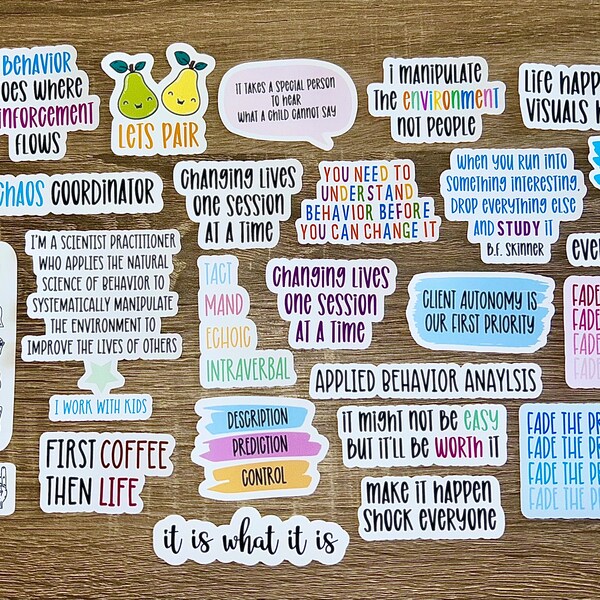 BEHAVIOR
OES WHERE
INFORCEMENT
FLOWS
LETS PAIR
IT TAKES A SPECIAL PERSON
TO HEAR
WHAT A CHILD CANNOT SAY
i MANIPULATE
THE ENVIRONMENT
NOT PEOPLE
LIFE HAPP
VISUALS H
CHAOS COORDINATOR
CHANGING LIVES
ONE SESSION
AT A TIME
YOU NEED TO
UNDERSTAND
BEHAVIOR BEFORE
YOU CAN CHANGE IT
WHEN YOU RUN INTO
SOMETHING INTERESTING,
DROP EVERYTHING ELSE
AND STUDY IT
B.F. SKINNER
EVE
I'M A SCIENTIST PRACTITIONER
WHO APPLIES THE NATURAL
SCIENCE OF BEHAVIOR TO
SYSTEMATICALLY MANIPULATE
THE ENVIRONMENT TO
IMPROVE THE LIVES OF OTHERS
I WORK WITH KIDS
TACT
MAND
ECHOIC
INTRAVERBAL
CHANGING LIVES
ONE SESSION
AT A TIME
CLIENT AUTONOMY IS
OUR FIRST PRIORITY
FADE
FADE
FADE
FADE
APPLIED BEHAVIOR ANAYLSIS
FIRST COFFEE
THEN LIFE
DESCRIPTION
PREDICTION
CONTROL
IT MIGHT NOT BE EASY
BUT IT'LL BE WORTH IT
FADE THE PR
FADE THE PR
FADE THE PR
FADE THE PR
MAKE IT HAPPEN
SHOCK EVERYONE
it is what it is